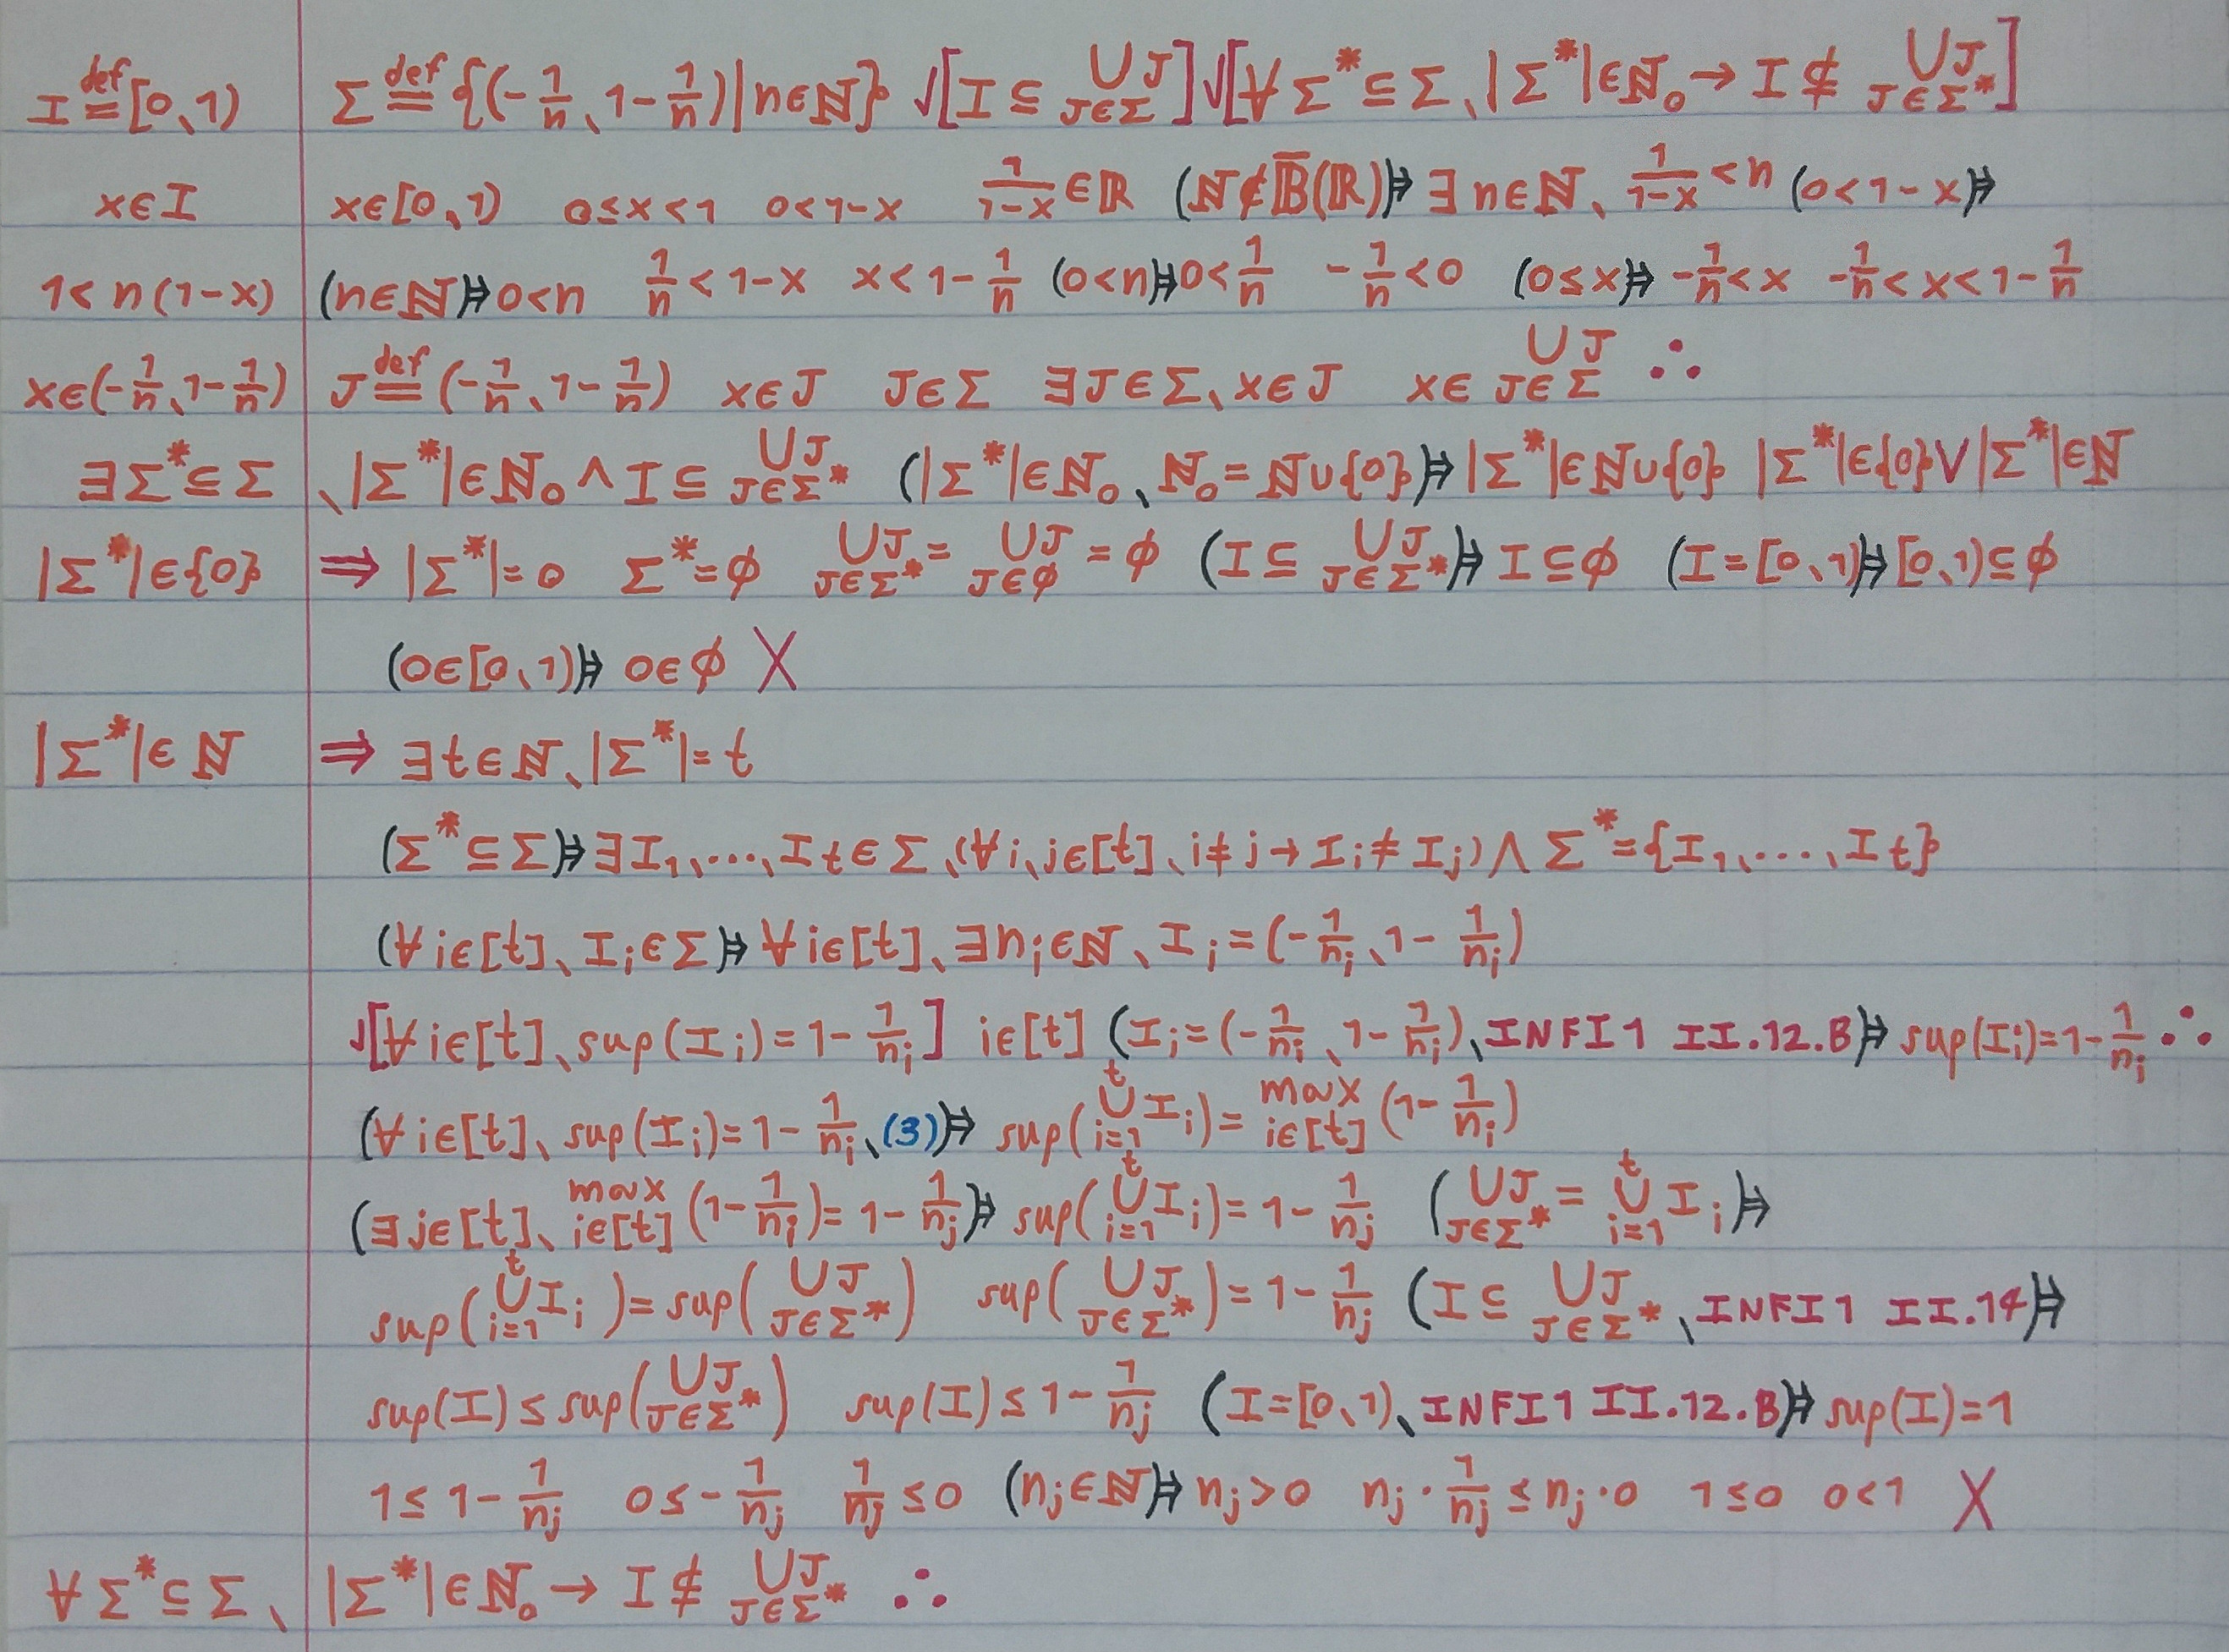 I ≝ [0、1) Σ ≝ {(-1/n、1-1/n)|n∈ℕ} √[I ⊆ ⋃_{J∈Σ} J] √[∀Σ*⊆Σ、|Σ*|∈ℕ₀ → I ⊈ ⋃_{J∈Σ*} J]
x∈I x∈[0、1) 0≤x<1 0<1-x 1/(1-x)∈ℝ (ℕ∉𝔹̅(ℝ))⤇ ∃n∈ℕ、1/(1-x)<n (0<1-x)⤇
1<n(1-x) (n∈ℕ)⤇ 0<n 1/n<1-x x<1-1/n (0<n)⤇ 0<1/n -1/n<0 (0≤x)⤇ -1/n<x -1/n<x<1-1/n
x∈(-1/n、1-1/n) J ≝ (-1/n、1-1/n) x∈J J∈Σ ∃J∈Σ、x∈J x∈ ⋃_{J∈Σ} J ∴
∃Σ*⊆Σ 、|Σ*|∈ℕ₀ ∧ I ⊆ ⋃_{J∈Σ*} J (|Σ*|∈ℕ₀、ℕ₀=ℕ∪{0})⤇ |Σ*|∈ℕ∪{0} |Σ*|∈{0}∨|Σ*|∈ℕ
|Σ*|∈{0} ⇒ |Σ*|=0 Σ*=ϕ ⋃_{J∈Σ*} J = ⋃_{J∈ϕ} J = ϕ (I ⊆ ⋃_{J∈Σ*} J)⤇ I⊆ϕ (I=[0、1))⤇ [0、1)⊆ϕ
(0∈[0、1))⤇ 0∈ϕ X
|Σ*|∈ℕ ⇒ ∃t∈ℕ、|Σ*|=t
(Σ*⊆Σ)⤇ ∃I₁、...、I_t∈Σ、(∀i、j∈[t]、i≠j→I_i≠I_j)∧Σ*={I₁、...、I_t}
(∀i∈[t]、I_i∈Σ)⤇ ∀i∈[t]、∃n_i∈ℕ、I_i=(-1/n_i、1-1/n_i)
√[∀i∈[t]、sup(I_i)=1-1/n_i] i∈[t] (I_i=(-1/n_i、1-1/n_i)、INFI1 II.12.B)⤇ sup(I_i)=1-1/n_i ∴
(∀i∈[t]、sup(I_i)=1-1/n_i、(3))⤇ sup(⋃_{i=1}^{t} I_i)= max_{i∈[t]} (1-1/n_i)
(∃j∈[t]、max_{i∈[t]} (1-1/n_i)=1-1/n_j)⤇ sup(⋃_{i=1}^{t} I_i)=1-1/n_j (⋃_{J∈Σ*} J = ⋃_{i=1}^{t} I_i)⤇
sup(⋃_{i=1}^{t} I_i)=sup(⋃_{J∈Σ*} J) sup(⋃_{J∈Σ*} J)=1-1/n_j (I ⊆ ⋃_{J∈Σ*} J、INFI1 II.14)⤇
sup(I)≤sup(⋃_{J∈Σ*} J) sup(I)≤1-1/n_j (I=[0、1)、INFI1 II.12.B)⤇ sup(I)=1
1≤1-1/n_j 0≤-1/n_j 1/n_j≤0 (n_j∈ℕ)⤇ n_j>0 n_j·1/n_j≤n_j·0 1≤0 0<1 X
∀Σ*⊆Σ、 |Σ*|∈ℕ₀ → I ⊈ ⋃_{J∈Σ*} J ∴